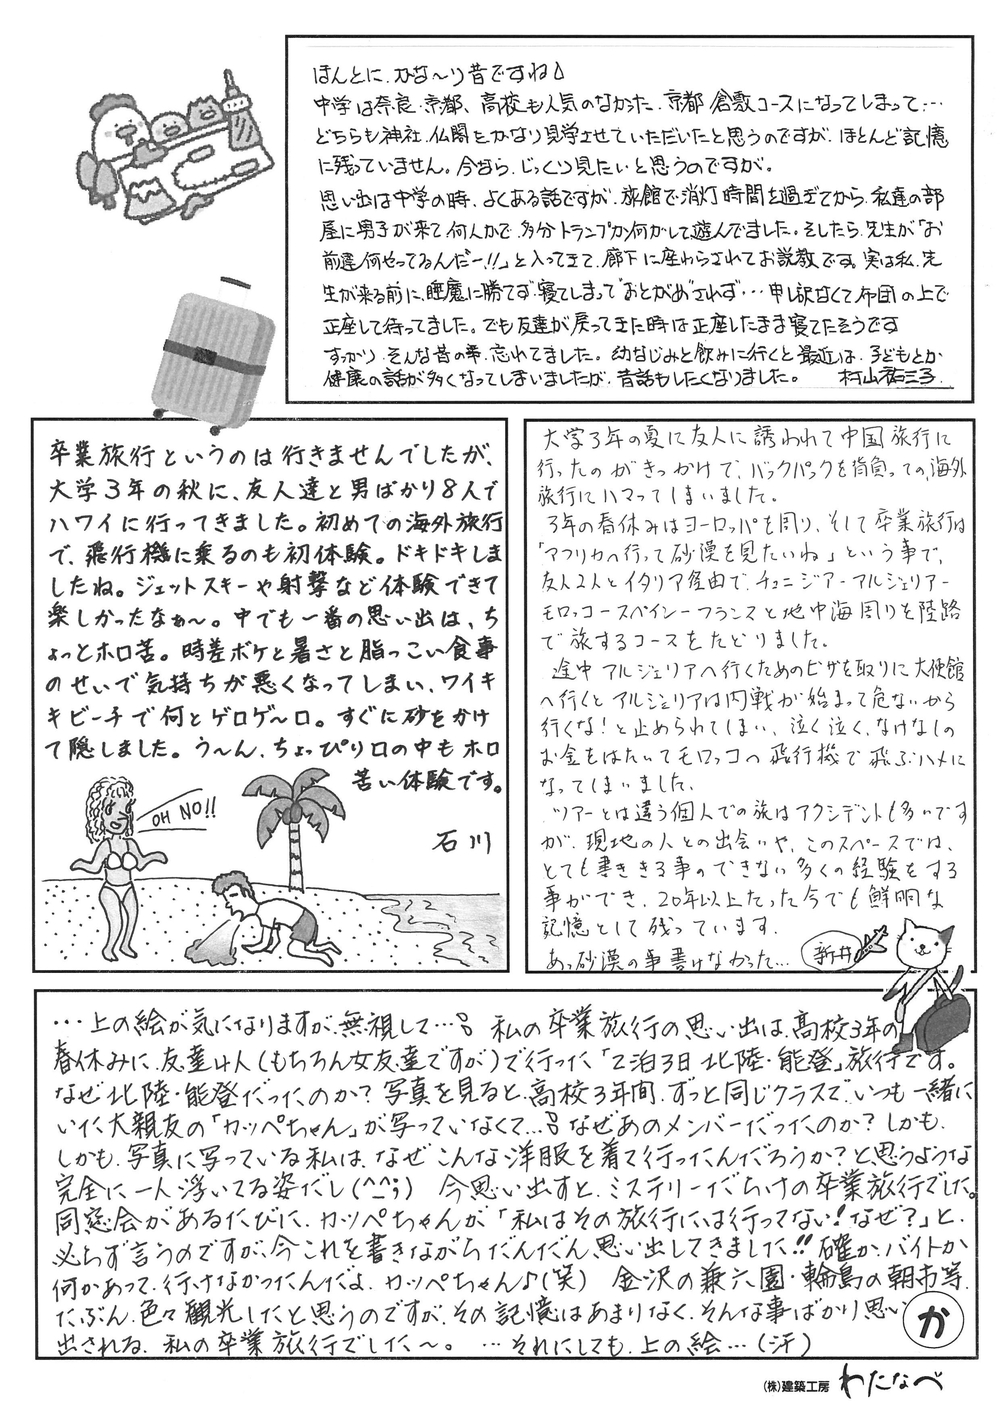 ほんとに、かな〜り昔ですね♪
中学は奈良・京都、高校も人気のなかった、京都 倉敷コースになってしまって…
どちらも神社、仏閣をかなり見学させていただいたと思うのですが、ほとんど記憶
に残っていません。今なら、じっくり見たいと思うのですが。
思い出は中学の時、よくある話ですが、旅館で消灯時間を過ぎてから、私達の部
屋に男子が来て何人かで、多分トランプか何かして遊んでました。そしたら、先生が「お
前達何やってるんだー!!」と入ってきて、廊下に座わらされてお説教です。実は私、先
生が来る前に、睡魔に勝てず、寝てしまって“おとがめ”されず…申し訳なくて布団の上で
正座して待ってました。でも友達が戻ってきた時は正座したまま寝てたそうです
すっかり、そんな昔の事、忘れてました。幼なじみと飲みに行くと最近は、子どもとか
健康の話が多くなってしまいましたが、昔話もしたくなりました。 村山祐三子
卒業旅行というのは行きませんでしたが、
大学3年の秋に、友人達と男ばかり8人で
ハワイに行ってきました。初めての海外旅行
で、飛行機に乗るのも初体験。ドキドキしま
したね。ジェットスキーや射撃など体験できて
楽しかったなぁ〜。中でも一番の思い出は、ち
ょっとホロ苦。時差ボケと暑さと脂っこい食事
のせいで気持ちが悪くなってしまい、ワイキ
キビーチで何とゲロゲ〜ロ。すぐに砂をかけ
て隠しました。う〜ん、ちょっぴり口の中もホロ
苦い体験です。
石川
OH NO!!
大学3年の夏に友人に誘われて中国旅行に
行ったのがきっかけで、バックパックを背負っての海外
旅行にハマってしまいました。
3年の春休みはヨーロッパを周り、そして卒業旅行は
「アフリカへ行って砂漠を見たいね」という事で、
友人2人とイタリア経由で、チュニジアーアルジェリアー
モロッコースペインーフランスと地中海周りを陸路
で旅するコースをたどりました。
途中アルジェリアへ行くためのビザを取りに大使館
へ行くとアルジェリアは内戦が始まって危ないから
行くな!と止められてしまい、泣く泣く、なけなしの
お金をはたいてモロッコの飛行機で飛ぶハメに
なってしまいました。
ツアーとは違う個人での旅はアクシデントも多いです
が、現地の人との出会いや、このスペースでは、
とても書ききる事のできない多くの経験をする
事ができ、20年以上たった今でも鮮明な
記憶として残っています。
あっ砂漠の事書けなかった… 新井
…上の絵が気になりますが、無視して…♪ 私の卒業旅行の思い出は、高校3年の
春休みに、友達4人(もちろん女友達ですが)で行った「2泊3日 北陸・能登」旅行です。
なぜ北陸・能登だったのか?写真を見ると、高校3年間、ずっと同じクラスで、いつも一緒に
いた大親友の「カッペちゃん」が写っていなくて…♪なぜあのメンバーだったのか?しかも、
しかも、写真に写っている私は、なぜこんな洋服を着て行ったんだろうか?と思うような
完全に一人浮いてる姿だし(^^;) 今思い出すと、ミステリーだらけの卒業旅行でした。
同窓会があるたびに、カッペちゃんが「私はその旅行には行ってない!なぜ?」と、
必らず言うのですが、今これを書きながらだんだん思い出してきました!!確か、バイトか
何かあって、行けなかったんだよ、カッペちゃん♪(笑) 金沢の兼六園・輪島の朝市等、
たぶん、色々観光したと思うのですが、その記憶はあまりなく、そんな事ばかり思い
出される、私の卒業旅行でした〜。 …それにしても、上の絵…(汗)
か
(株)建築工房 わたなべ